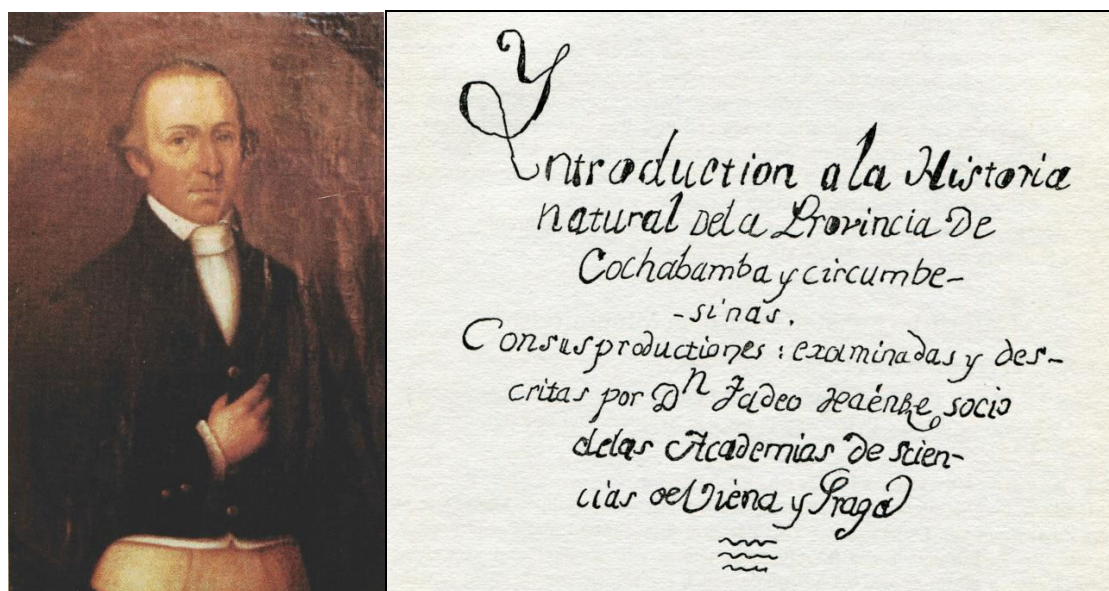 Yntroduction a la Historia
natural Dela Provincia De
Cochabamba y circumbe-
-sinas.
Consus productiones: examinadas y des-
critas por Dn Tadeo Haénke socio
delas Academias De scien-
cias de Viena y Praga